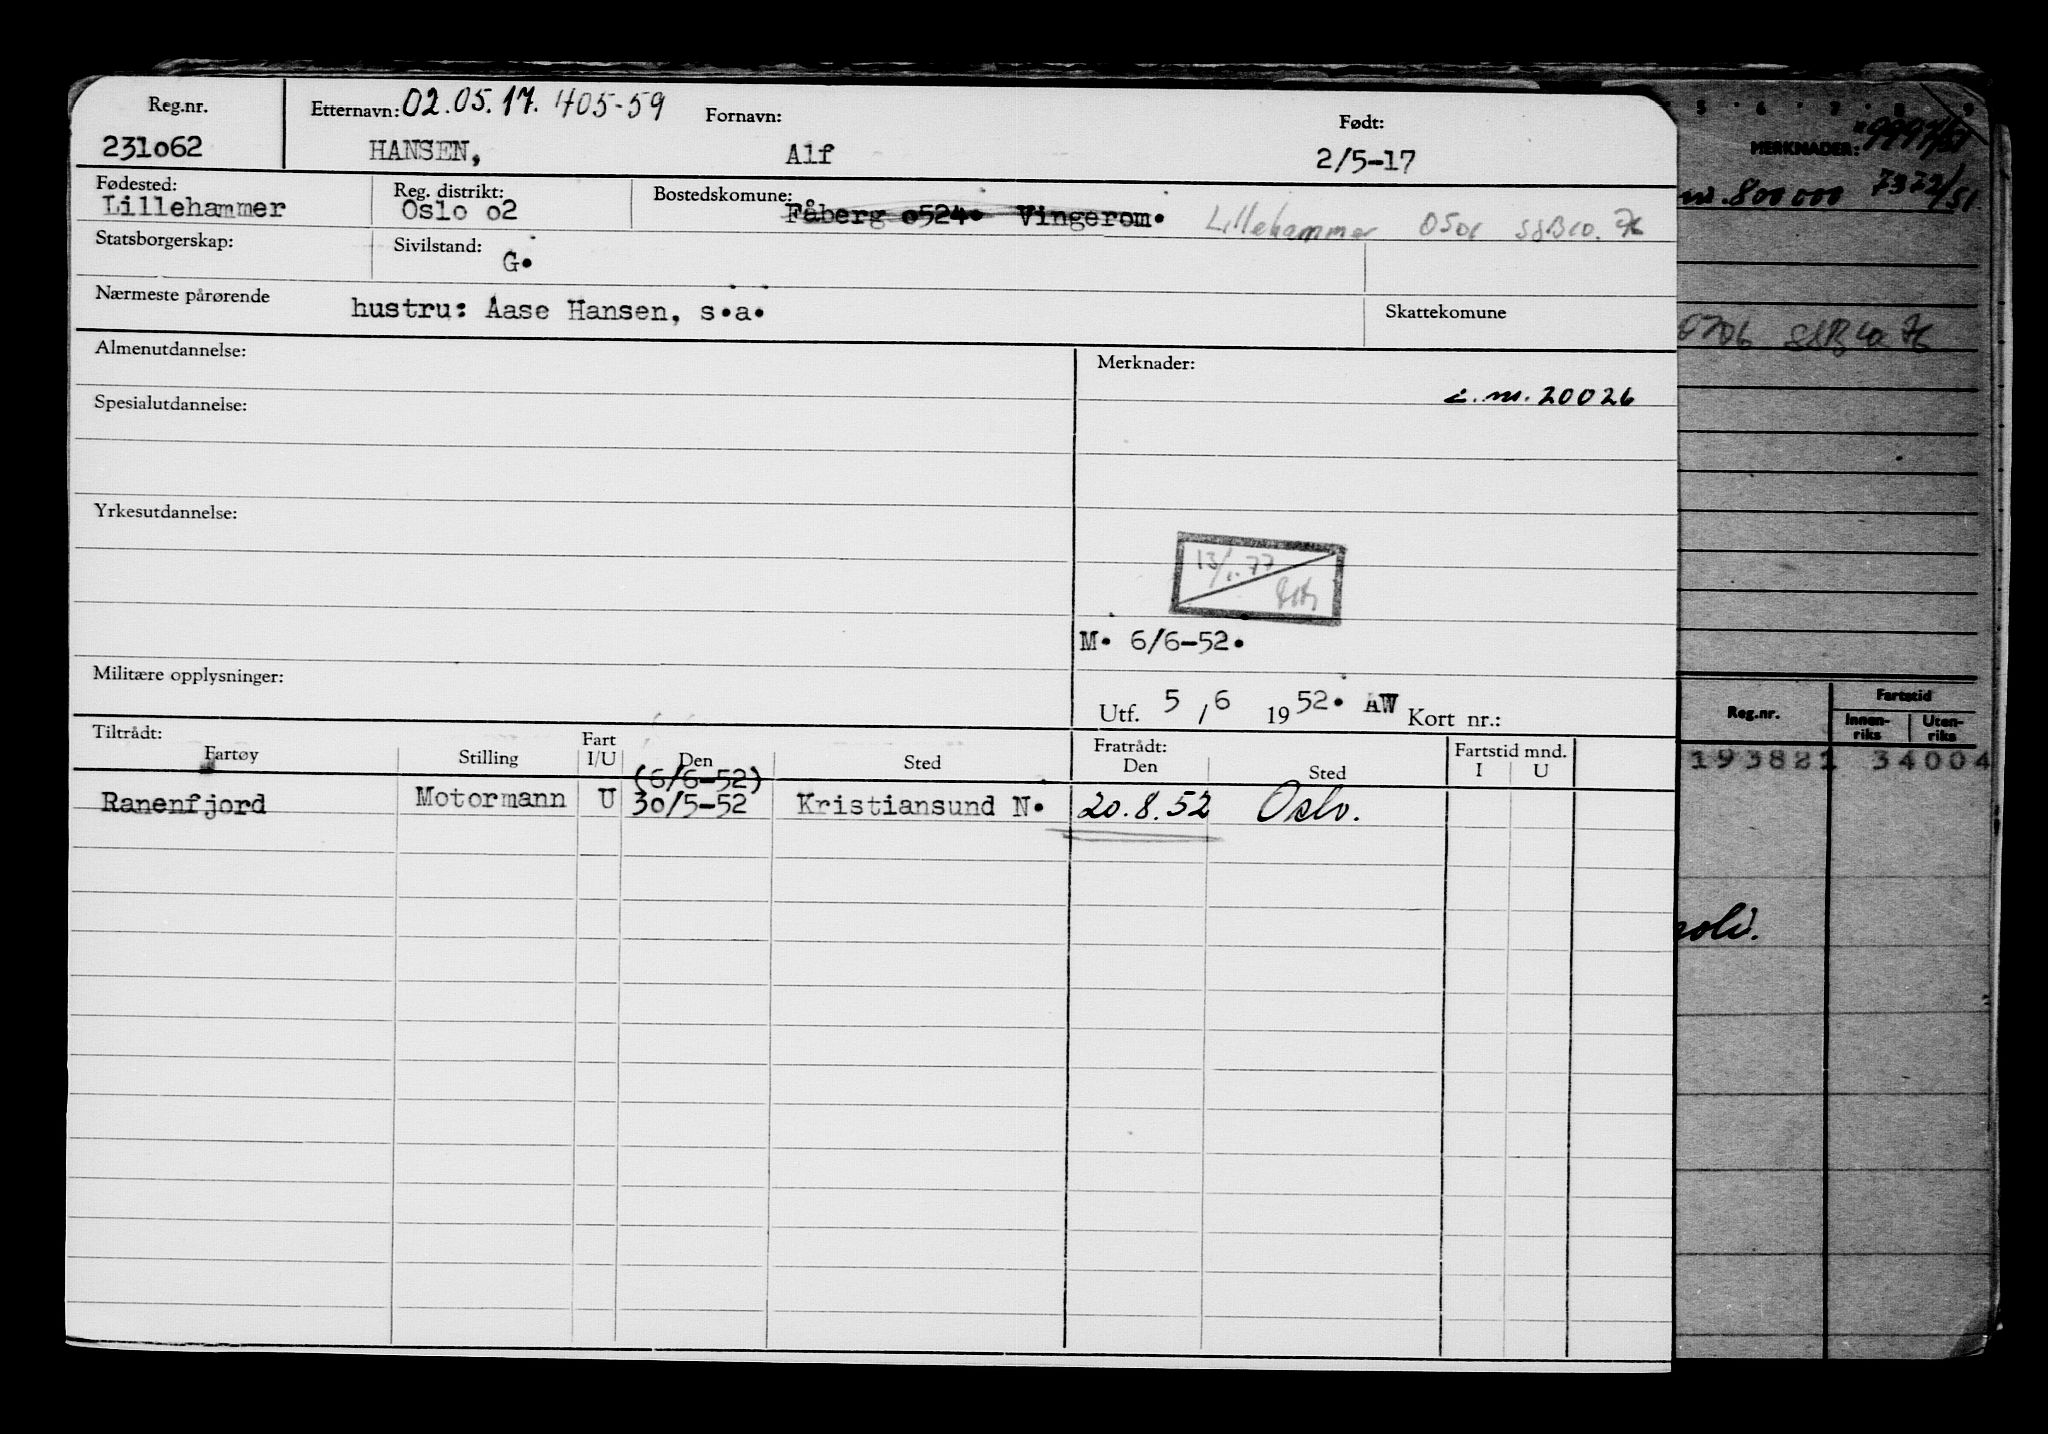 Reg.nr. Etternavn: 02.05.17. 405-59 Fornavn: Født:
231o62 HANSEN, Alf 2/5-17
Fødested: Reg. distrikt: Bostedskomune:
Lillehammer Oslo o2 Fåberg o524. Vingerom. Lillehammer
Statsborgerskap: Sivilstand: G.
Nærmeste pårørende hustru: Aase Hansen, s.a. Skattekomune
Almenutdannelse: Merknader:
20026
Spesialutdannelse:
Yrkesutdannelse:
M. 6/6-52.
Militære opplysninger:
Utf. 5/6 1952. AW Kort nr.:
Tiltrådt: Fratrådt:
Fartøy Stilling Fart I/U Den Sted Den Sted Fartstid mnd. I U
(6/6-52)
Ranenfjord Motormann U 30/5-52 Kristiansund N. 20.8.52 Oslo.
5 6 7 8 9
MERKNADER:
800000 7372/51
Reg.nr. Fartstid
Innen-riks Uten-riks
193821 34004